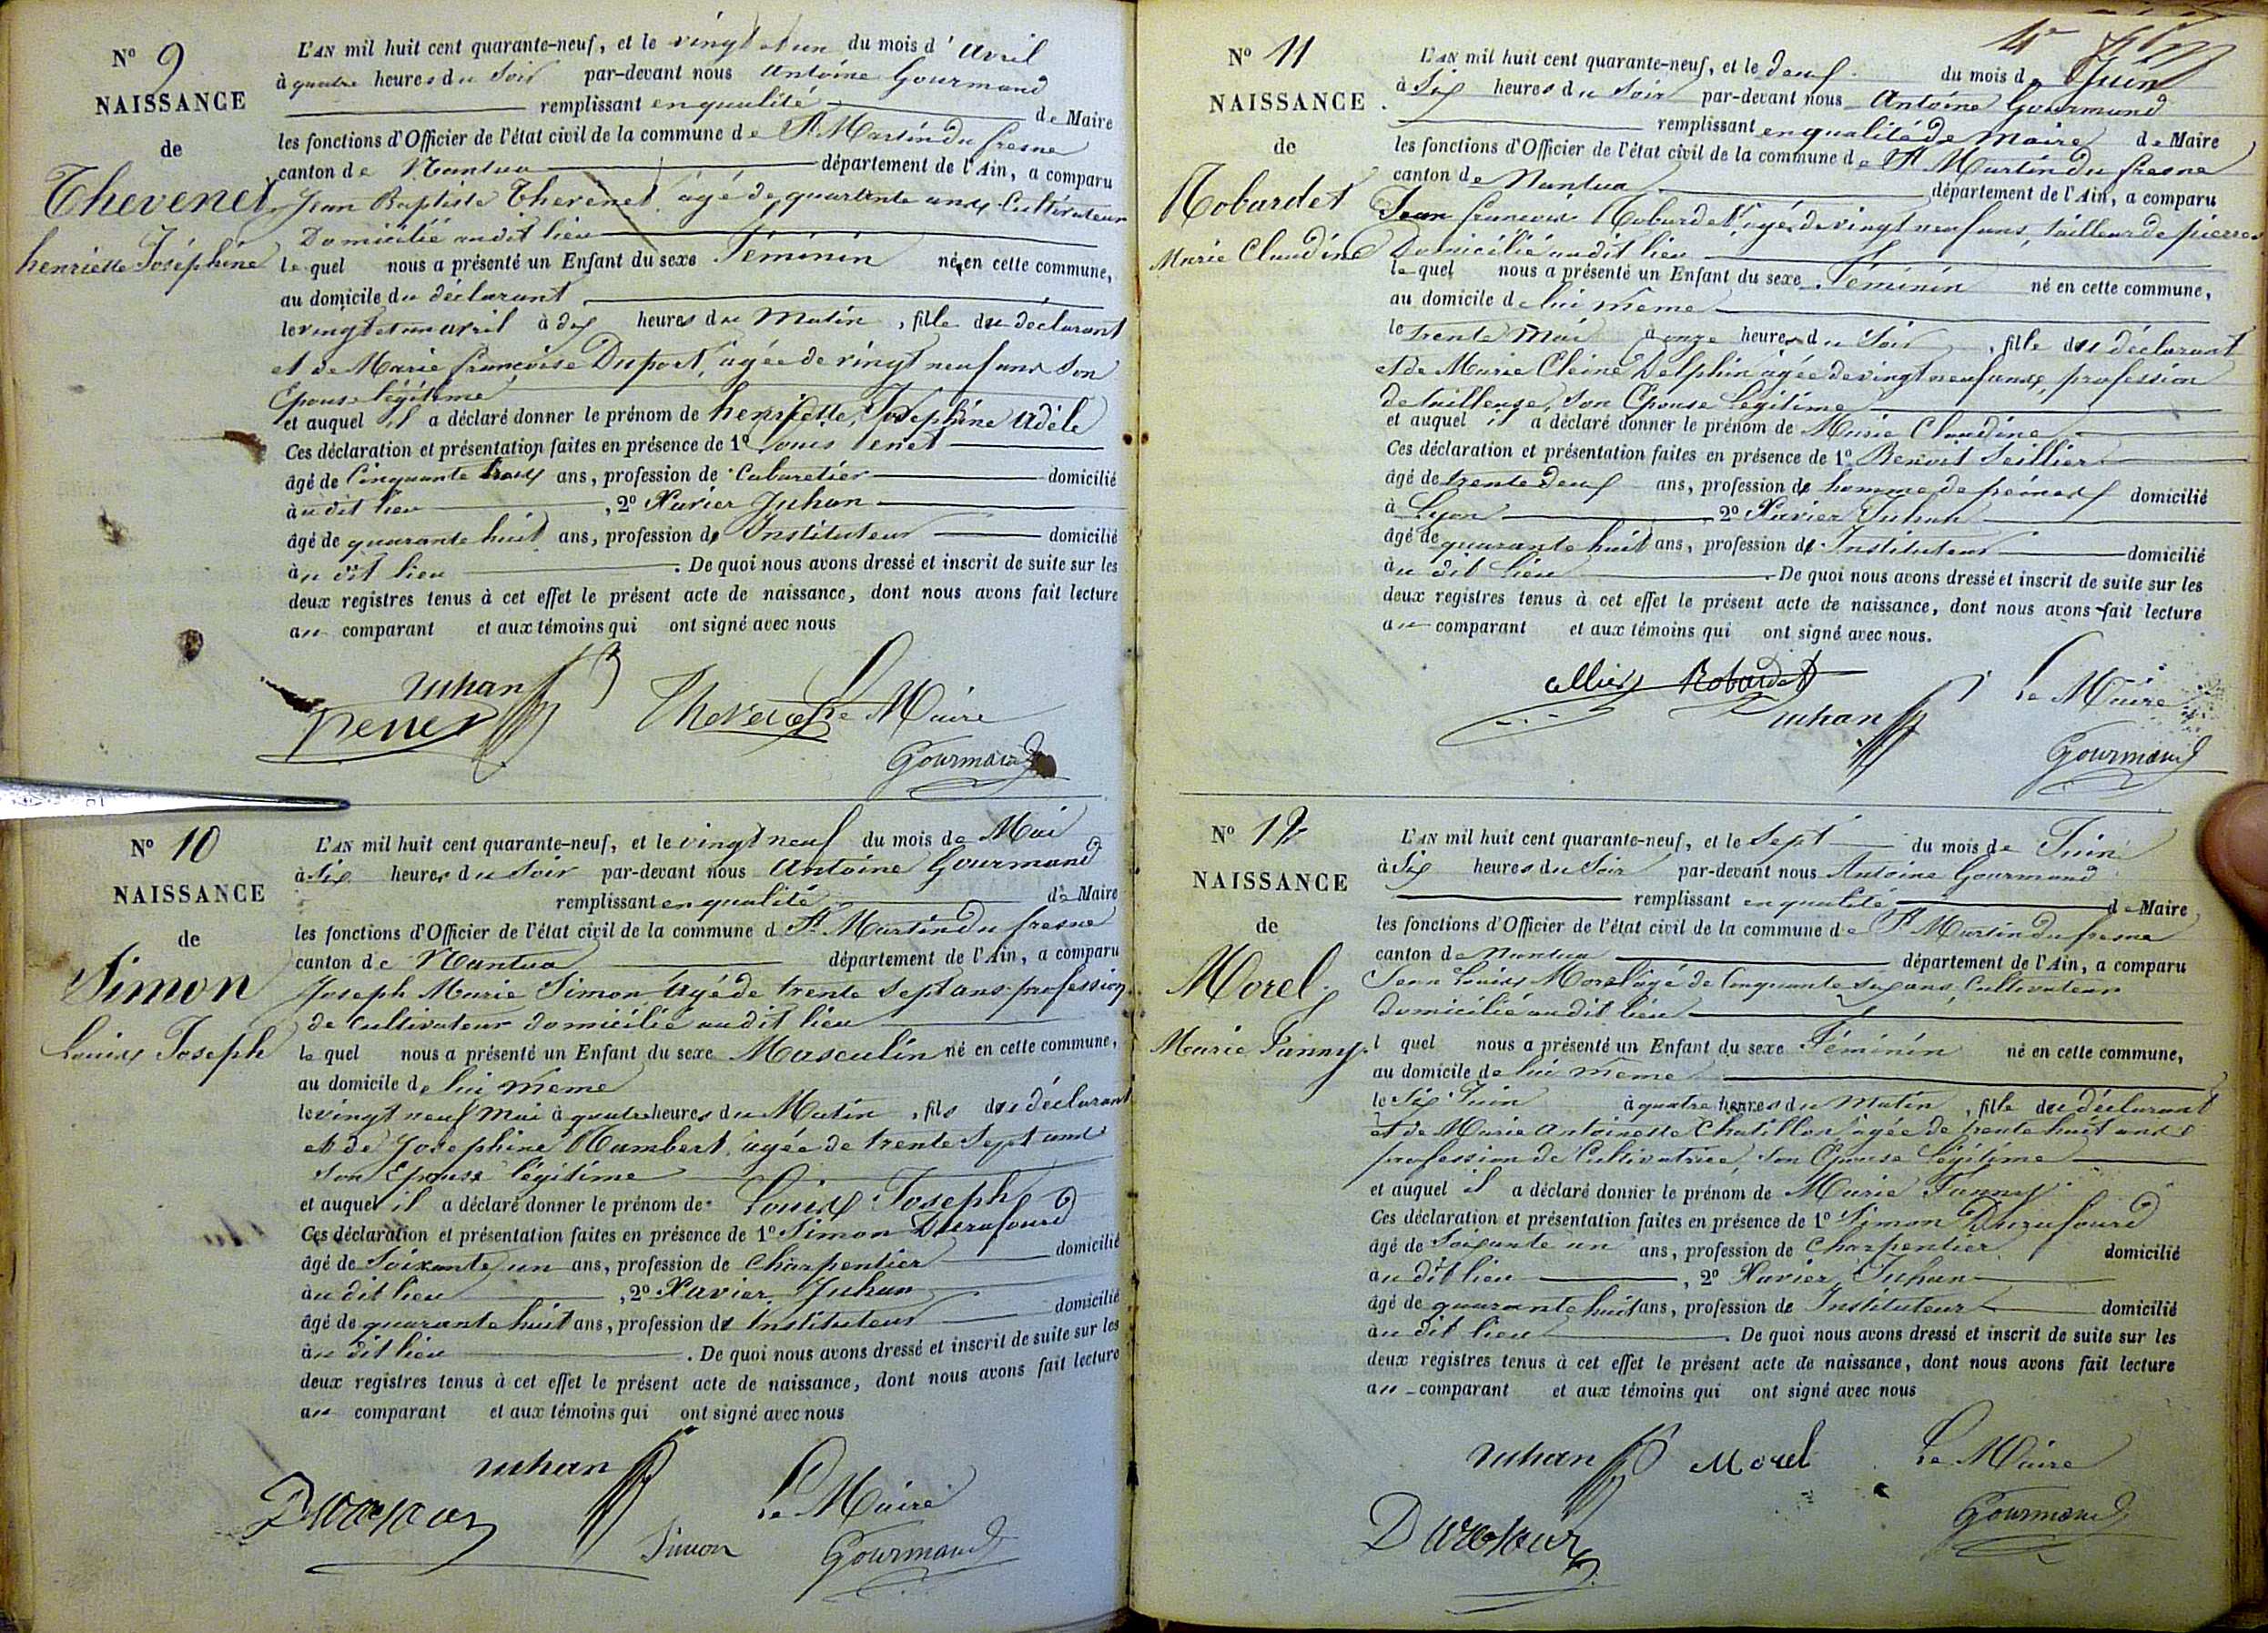 N° 9
NAISSANCE
de
Thevenet
henriette Joséphine
L'AN mil huit cent quarante-neuf, et le vingt et un du mois d'avril
à quatre heures du Soir par-devant nous Antoine Gourmand
remplissant en qualité de Maire
les fonctions d'Officier de l'état civil de la commune de St. Martin du fresne
canton de Nantua département de l'Ain, a comparu
Jean Baptiste Thevenet âgé de quarante ans Cultivateur
Domicilié audit lieu
le quel nous a présenté un Enfant du sexe Féminin né en cette commune,
au domicile du déclarant
le vingt et un avril à dix heures du Matin, fille du déclarant
et de Marie françoise Duport, agée de vingt neuf ans son
Epouse légitime
et auquel il a déclaré donner le prénom de henriette, Joséphine Adèle
Ces déclaration et présentation faites en présence de 1° Louis Venet
âgé de Cinquante ans, profession de Cabaretier domicilié
au dit lieu, 2° Xavier Juhan
âgé de quarante huit ans, profession de Instituteur domicilié
au dit lieu. De quoi nous avons dressé et inscrit de suite sur les
deux registres tenus à cet effet le présent acte de naissance, dont nous avons fait lecture
au comparant et aux témoins qui ont signé avec nous
Juhan
Venet Thevenet Le Maire
Gourmand
N° 10
NAISSANCE
de
Simon
Louis Joseph
L'AN mil huit cent quarante-neuf, et le vingt neuf du mois de Mai
à Six heures du Soir par-devant nous Antoine Gourmand
remplissant en qualité de Maire
les fonctions d'Officier de l'état civil de la commune d St. Martin du fresne
canton de Nantua département de l'Ain, a comparu
Joseph Marie Simon âgé de trente Sept ans profession
de Cultivateur domicilié audit lieu
le quel nous a présenté un Enfant du sexe Masculin né en cette commune,
au domicile de lui meme
le vingt neuf Mai à quatre heures du Matin, fils du déclarant
et de Josephine Humbert, agée de trente Sept ans
Son Epouse légitime
et auquel il a déclaré donner le prénom de Louis Joseph
Ces déclaration et présentation faites en présence de 1° Simon Durafourd
âgé de Soixante un ans, profession de Charpentier domicilié
au dit lieu, 2° Xavier Juhan
âgé de quarante huit ans, profession de Instituteur domicilié
au dit lieu. De quoi nous avons dressé et inscrit de suite sur les
deux registres tenus à cet effet le présent acte de naissance, dont nous avons fait lecture
au comparant et aux témoins qui ont signé avec nous
Juhan
Le Maire
Simon Gourmand
N° 11
NAISSANCE
de
Robardet
Marie Claudine
L'AN mil huit cent quarante-neuf, et le deux du mois de Juin
à Six heures du Soir par-devant nous Antoine Gourmand
remplissant en qualité de Maire de Maire
les fonctions d'Officier de l'état civil de la commune de St Martin du fresne
canton de Nantua département de l'Ain, a comparu
Jean francois Robardet agé de vingt neuf ans, tailleur de pierres
Domicilié audit lieu
le quel nous a présenté un Enfant du sexe Féminin né en cette commune,
au domicile de lui meme
le trente Mai à onze heures du Soir, fille du déclarant
et de Marie Cleine Delphin agée de vingt neuf ans, profession
de tailleuse, Son Epouse légitime
et auquel il a déclaré donner le prénom de Marie Claudine
Ces déclaration et présentation faites en présence de 1° Benoit
âgé de trente deux ans, profession de homme de peine domicilié
à Lyon 2° Xavier Juhan
âgé de quarante huit ans, profession de Instituteur domicilié
au dit lieu. De quoi nous avons dressé et inscrit de suite sur les
deux registres tenus à cet effet le présent acte de naissance, dont nous avons fait lecture
au comparant et aux témoins qui ont signé avec nous.
Robardet Le Maire
Juhan
Gourmand
N° 12
NAISSANCE
de
Morel
Marie Fanny
L'AN mil huit cent quarante-neuf, et le Sept du mois de Juin
à Six heures du Soir par-devant nous Antoine Gourmand
remplissant en qualité de Maire
les fonctions d'Officier de l'état civil de la commune de St Martin du fresne
canton de Nantua département de l'Ain, a comparu
Jean Louis Morel agé de Cinquante six ans, Cultivateur
domicilié audit lieu
l quel nous a présenté un Enfant du sexe Féminin né en cette commune,
au domicile de lui meme
le Six Juin à quatre heures du Matin, fille du déclarant
et de Marie Antoinette Chatillon agée de trente huit ans
profession de Cultivatrice, Son Epouse légitime
et auquel il a déclaré donner le prénom de Marie Fanny
Ces déclaration et présentation faites en présence de 1° Simon Durafourd
âgé de Soixante un ans, profession de Charpentier domicilié
au dit lieu, 2° Xavier Juhan
âgé de quarante huit ans, profession de Instituteur domicilié
au dit lieu. De quoi nous avons dressé et inscrit de suite sur les
deux registres tenus à cet effet le présent acte de naissance, dont nous avons fait lecture
au comparant et aux témoins qui ont signé avec nous
Juhan Morel Le Maire
Gourmand